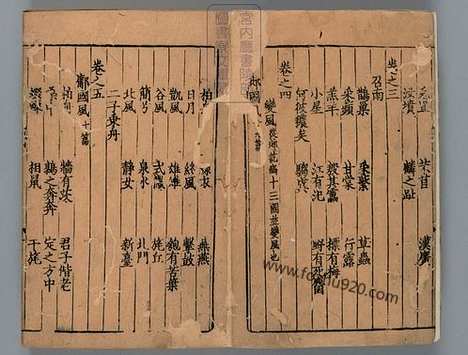 兔罝 芣苢 漢廣
汝墳 麟之趾
卷之三
召南
鵲巢 采蘩 草蟲
采蘋 甘棠 行露
羔羊 殷其靁 摽有梅
小星 江有汜 野有死麕
何彼襛矣 騶虞
卷之四
變風 從邶詩后十三國並變風也
邶國
柏舟 綠衣 燕燕
日月 終風 擊鼓
凱風 雄雉 匏有苦葉
谷風 式微 旄丘
簡兮 泉水 北門
北風 靜女 新臺
二子乘舟
卷之五
鄘國風 十篇
柏舟 牆有茨 君子偕老
桑中 鶉之奔奔 定之方中
蝃蝀 相鼠 干旄
宮內廳書陵部
www.foshu920.com